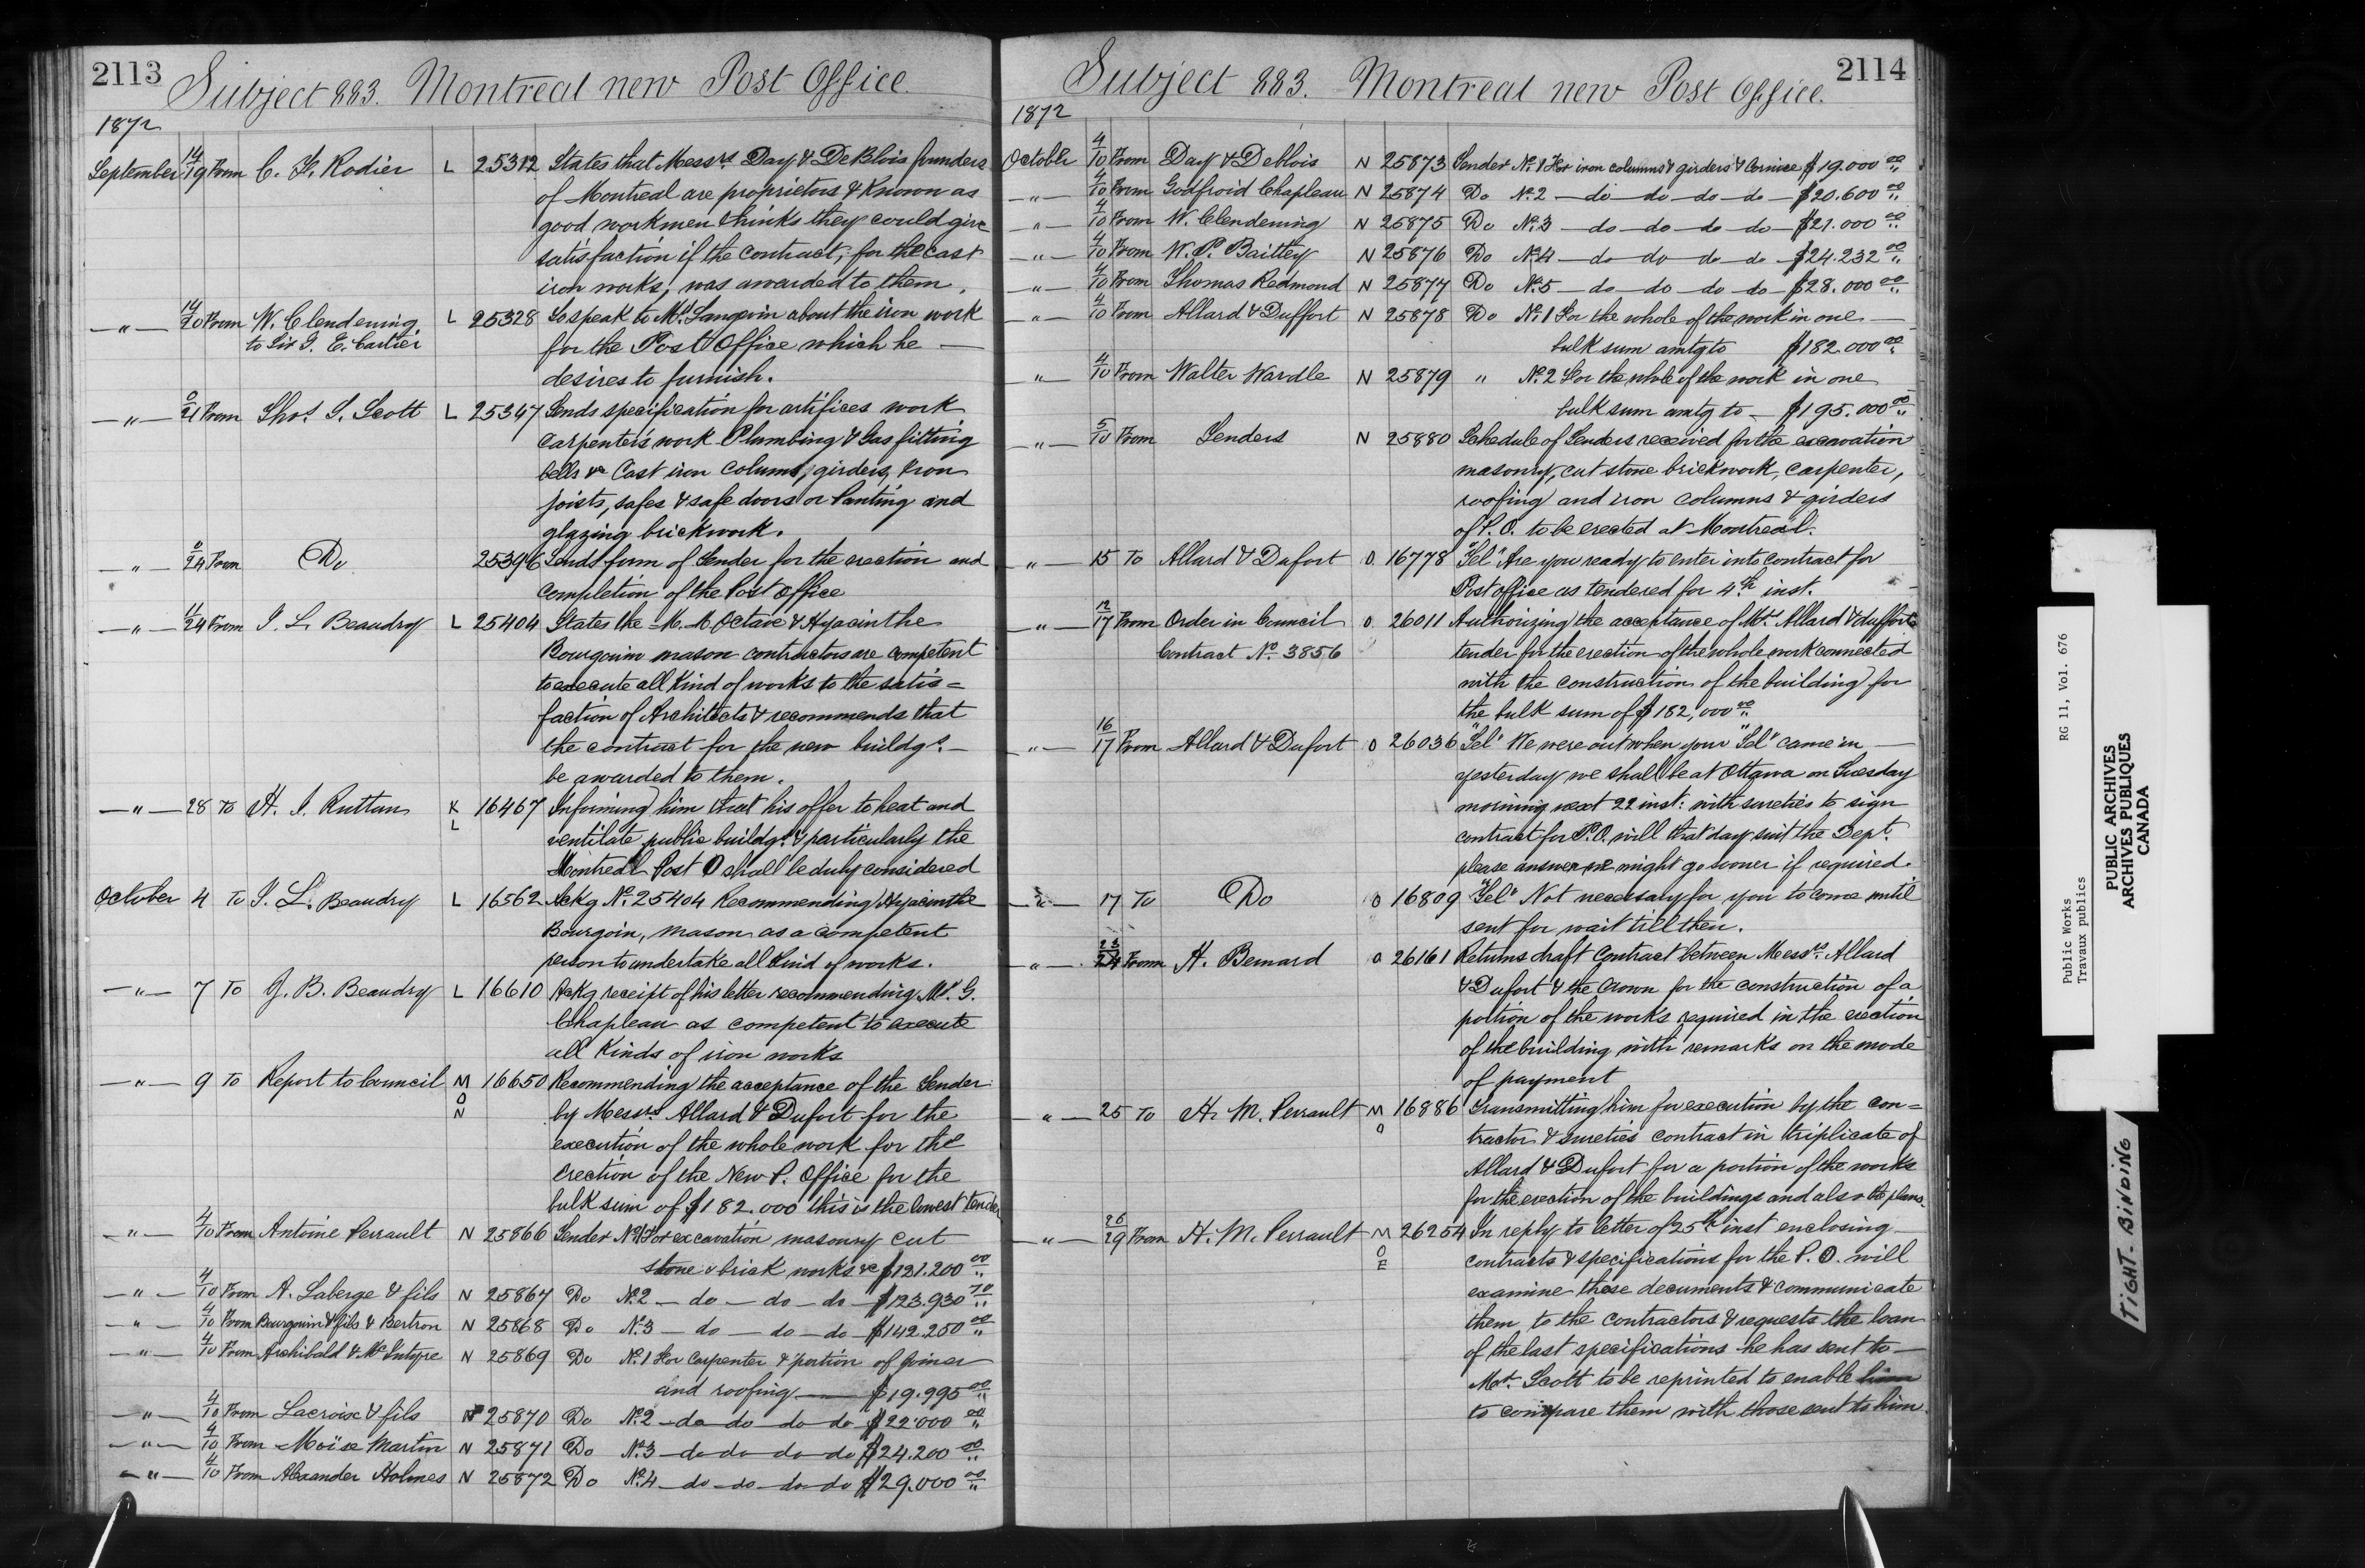 2113
Subject 883. Montreal new Post Office.
1872
September 14/19 From C. S. Rodier L 25312 States that Messrs Day & DeBlois founders
of Montreal are proprietors & known as
good workmen thinks they could give
satisfaction if the contract, for the cast
iron works, was awarded to them.
—"— 14/20 From W. Clendening L 25328 To speak to Mr. Langevin about the iron work
to Sir G. E. Cartier for the Post Office which he —
desires to furnish.
—"— 21 From Thos. S. Scott L 25347 Sends specification for artifices work
carpenter's work Plumbing & Gas fitting
bells &c Cast iron colums, girders, iron
joists, safes & safe doors or Panting and
glazing brickwork.
—"— 24 From Do 25396 Sends form of Tender for the erection and
completion of the Post Office
—"— 11/24 From J. L. Beaudry L 25404 States the M. M. Octave & Hyacinthe
Bourgouin mason contractors are competent
to execute all kind of works to the satis=
faction of Architects & recommends that
the contract for the new buildgs. —
be awarded to them.
—"— 28 To H. J. Ruttan K L 16467 Informing him that his offer to heat and
ventilate public buildgs. & particularly the
Montreal Post O shall be duly considered
October 4 To J. L. Beaudry L 16562 Ackg No. 25404 Recommending Hyacinthe
Bourgoin, mason as a competent
person to undertake all kind of works.
—"— 7 To J. B. Beaudry L 16610 Ackg receipt of his letter recommending Mr. G.
Chapleau as competent to execute
all kinds of iron works
—"— 9 To Report to Council M O N 16650 Recommending the acceptance of the Tender
by Messrs Allard & Dufort for the
execution of the whole work for the
erection of the New P. Office for the
bulk sum of $182.000 this is the lowest tender
—"— 4/10 From Antoine Perrault N 25866 Tender No. 1 For excavation masonry cut
stone & brick works &c $121.200 00
—"— 4/10 From A. Laberge & fils N 25867 Do No. 2 — do — do — do — $123.930 70
—"— 4/10 From Bourgouin & fils & Bertron N 25868 Do No. 3 — do — do — do — $142.250 00
—"— 4/10 From Archibald & McIntyre N 25869 Do No. 1 For Carpenter & portion of joiner
and roofing — $19.995 00
—"— 4/10 From Lacroix & fils N 25870 Do No. 2 — do — do — do — do $22.000 00
—"— 4/10 From Moïse Martin N 25871 Do No. 3 — do — do — do — do $24.200 00
—"— 4/10 From Alexander Holmes N 25872 Do No. 4 — do — do — do — do $29.000 00
2114
Subject 883. Montreal new Post Office.
1872
October 4/10 From Day & Deblois N 25873 Tender No. 1 For iron columns & girders & Cornice $19.000 00
—"— 4/10 From Godfroid Chapleau N 25874 Do No. 2 — do — do — do — do — $20.600 00
—"— 4/10 From W. Clendening N 25875 Do No. 3 — do — do — do — do — $21.000 00
—"— 4/10 From W. P. Bartley N 25876 Do No. 4 — do — do — do — do — $24.232 00
—"— 4/10 From Thomas Redmond N 25877 Do No. 5 — do — do — do — do — $28.000 00
—"— 4/10 From Allard & Duffort N 25878 Do No. 1 For the whole of the work in one —
bulk sum amtg to $182.000 00
—"— 4/10 From Walter Wardle N 25879 " No. 2 For the whole of the work in one
bulk sum amtg to — $195.000 00
—"— 5/10 From Tenders N 25880 Schedule of Tenders received for the excavation
masonry, cut stone brickwork, carpenter,
roofing and iron columns & girders
of P. O. to be erected at Montreal.
—"— 15 To Allard & Dufort O 16778 "Tel" Are you ready to enter into contract for
Post office as tendered for 4th inst.
—"— 12/17 From Order in Council O 26011 Authorizing the acceptance of Mrs. Allard & dufforts
Contract No. 3856 tender for the erection of the whole work connected
with the construction of the building for
the bulk sum of $182,000 00
—"— 16/17 From Allard & Dufort O 26036 "Tel" We were out when your "Tel" came in —
yesterday we shall be at Ottawa on Tuesday
morning next 22 inst: with sureties to sign
contract for P.O. will that day suit the Dept.
please answer we might go sooner if required.
—"— 17 To Do O 16809 "Tel" Not necessary for you to come until
sent for wait till then.
—"— 23/24 From H. Bernard O 26161 Returns draft Contract between Messrs. Allard
& Dufort & the Crown for the construction of a
portion of the works required in the erection
of the building with remarks on the mode
of payment
" — 25 To H. M. Perrault M O 16886 Transmitting him for execution by the con=
tractor & sureties contract in triplicate of
Allard & Dufort for a portion of the works
for the erection of the buildings and also the plans.
—"— 26/29 From H. M. Perrault M O E 26254 In reply to letter of 25th inst enclosing
contracts & specifications for the P. O. will
examine these documents & communicate
them to the contractors & requests the loan
of the last specifications he has sent to —
Mr. Scott to be reprinted to enable him
to compare them with those sent to him.
Public Works RG 11, Vol. 676
Travaux publics
PUBLIC ARCHIVES
ARCHIVES PUBLIQUES
CANADA
TIGHT BINDING